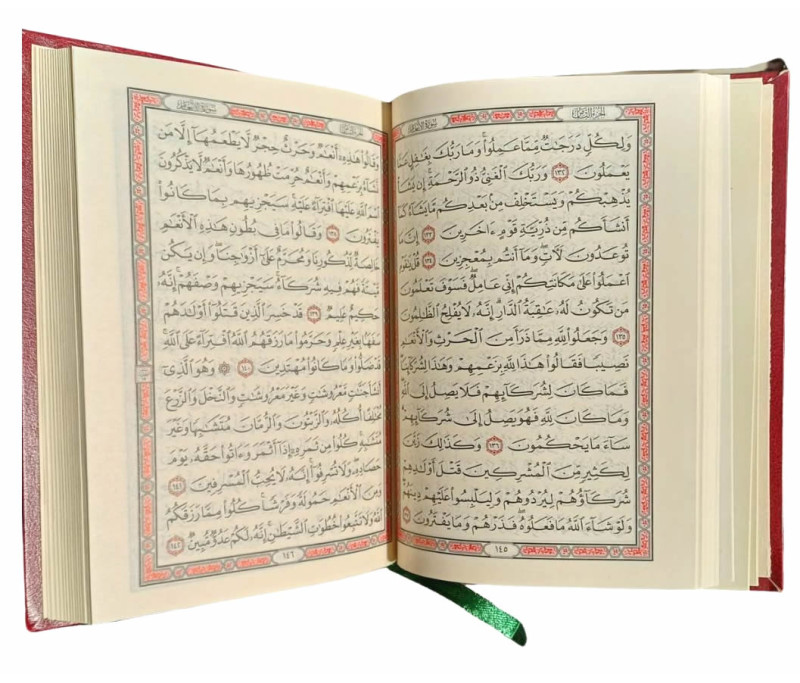 الجزء الثامن
سورة الأنعام
وَلِكُلٍّ دَرَجَٰتٌ مِّمَّا عَمِلُوا۟ وَمَا رَبُّكَ بِغَٰفِلٍ عَمَّا
يَعْمَلُونَ ١٣٢ وَرَبُّكَ ٱلْغَنِىُّ ذُو ٱلرَّحْمَةِ إِن يَشَأْ
يُذْهِبْكُمْ وَيَسْتَخْلِفْ مِنۢ بَعْدِكُم مَّا يَشَآءُ كَمَآ
أَنشَأَكُم مِّن ذُرِّيَّةِ قَوْمٍ ءَاخَرِينَ ١٣٣ إِنَّ مَا
تُوعَدُونَ لَءَاتٍ وَمَآ أَنتُم بِمُعْجِزِينَ ١٣٤ قُلْ يَٰقَوْمِ
ٱعْمَلُوا۟ عَلَىٰ مَكَانَتِكُمْ إِنِّى عَامِلٌ فَسَوْفَ تَعْلَمُونَ
مَن تَكُونُ لَهُۥ عَٰقِبَةُ ٱلدَّارِ إِنَّهُۥ لَا يُفْلِحُ ٱلظَّٰلِمُونَ
١٣٥ وَجَعَلُوا۟ لِلَّهِ مِمَّا ذَرَأَ مِنَ ٱلْحَرْثِ وَٱلْأَنْعَٰمِ
نَصِيبًا فَقَالُوا۟ هَٰذَا لِلَّهِ بِزَعْمِهِمْ وَهَٰذَا لِشُرَكَآئِنَا
فَمَا كَانَ لِشُرَكَآئِهِمْ فَلَا يَصِلُ إِلَى ٱللَّهِ
وَمَا كَانَ لِلَّهِ فَهُوَ يَصِلُ إِلَىٰ شُرَكَآئِهِمْ
سَآءَ مَا يَحْكُمُونَ ١٣٦ وَكَذَٰلِكَ زَيَّنَ
لِكَثِيرٍ مِّنَ ٱلْمُشْرِكِينَ قَتْلَ أَوْلَٰدِهِمْ
شُرَكَآؤُهُمْ لِيُرْدُوهُمْ وَلِيَلْبِسُوا۟ عَلَيْهِمْ دِينَهُمْ
وَلَوْ شَآءَ ٱللَّهُ مَا فَعَلُوهُ فَذَرْهُمْ وَمَا يَفْتَرُونَ
١٤٥
الجزء الثامن
سورة الأنعام
وَقَالُوا۟ هَٰذِهِۦٓ أَنْعَٰمٌ وَحَرْثٌ حِجْرٌ لَّا يَطْعَمُهَآ إِلَّا مَن
نَّشَآءُ بِزَعْمِهِمْ وَأَنْعَٰمٌ حُرِّمَتْ ظُهُورُهَا وَأَنْعَٰمٌ لَّا يَذْكُرُونَ
ٱسْمَ ٱللَّهِ عَلَيْهَا ٱفْتِرَآءً عَلَيْهِ سَيَجْزِيهِم بِمَا كَانُوا۟
يَفْتَرُونَ ١٣٨ وَقَالُوا۟ مَا فِى بُطُونِ هَٰذِهِ ٱلْأَنْعَٰمِ
خَالِصَةٌ لِّذُكُورِنَا وَمُحَرَّمٌ عَلَىٰٓ أَزْوَٰجِنَا وَإِن يَكُن
مَّيْتَةً فَهُمْ فِيهِ شُرَكَآءُ سَيَجْزِيهِمْ وَصْفَهُمْ إِنَّهُۥ
حَكِيمٌ عَلِيمٌ ١٣٩ قَدْ خَسِرَ ٱلَّذِينَ قَتَلُوٓا۟ أَوْلَٰدَهُمْ
سَفَهًۢا بِغَيْرِ عِلْمٍ وَحَرَّمُوا۟ مَا رَزَقَهُمُ ٱللَّهُ ٱفْتِرَآءً عَلَى ٱللَّهِ
قَدْ ضَلُّوا۟ وَمَا كَانُوا۟ مُهْتَدِينَ ١٤٠ ۞ وَهُوَ ٱلَّذِىٓ
أَنشَأَ جَنَّٰتٍ مَّعْرُوشَٰتٍ وَغَيْرَ مَعْرُوشَٰتٍ وَٱلنَّخْلَ وَٱلزَّرْعَ
مُخْتَلِفًا أُكُلُهُۥ وَٱلزَّيْتُونَ وَٱلرُّمَّانَ مُتَشَٰبِهًا وَغَيْرَ
مُتَشَٰبِهٍ كُلُوا۟ مِن ثَمَرِهِۦٓ إِذَآ أَثْمَرَ وَءَاتُوا۟ حَقَّهُۥ يَوْمَ
حَصَادِهِۦ وَلَا تُسْرِفُوٓا۟ إِنَّهُۥ لَا يُحِبُّ ٱلْمُسْرِفِينَ ١٤١
وَمِنَ ٱلْأَنْعَٰمِ حَمُولَةً وَفَرْشًا كُلُوا۟ مِمَّا رَزَقَكُمُ
ٱللَّهُ وَلَا تَتَّبِعُوا۟ خُطُوَٰتِ ٱلشَّيْطَٰنِ إِنَّهُۥ لَكُمْ عَدُوٌّ مُّبِينٌ ١٤٢
١٤٦